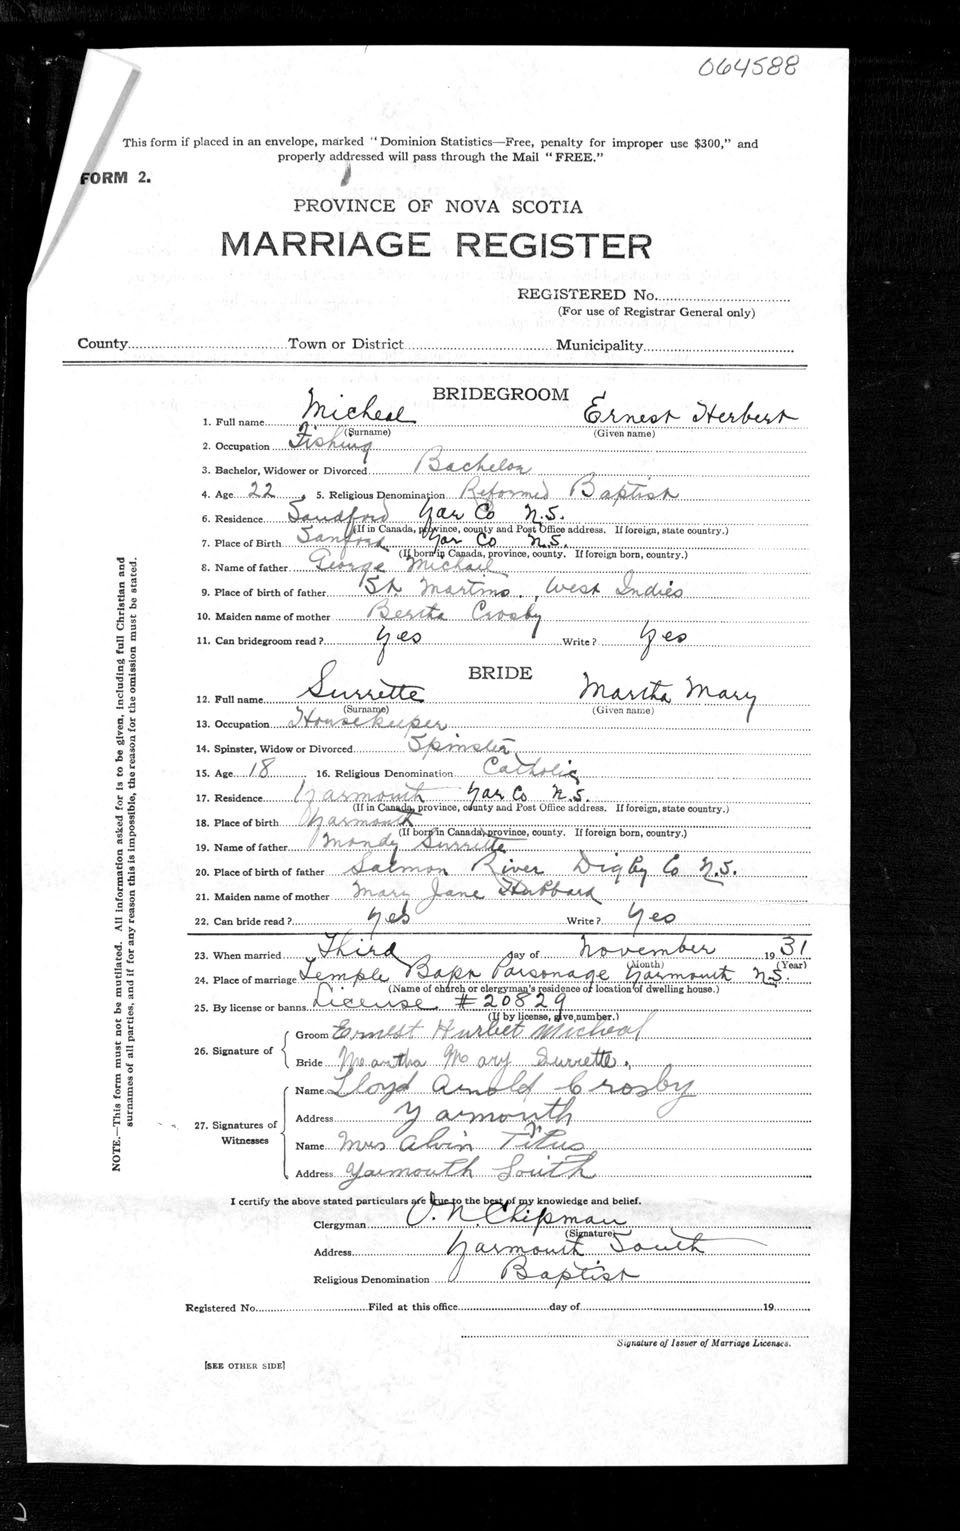 064588
This form if placed in an envelope, marked "Dominion Statistics—Free, penalty for improper use $300," and
properly addressed will pass through the Mail "FREE."
FORM 2.
PROVINCE OF NOVA SCOTIA
MARRIAGE REGISTER
REGISTERED No.
(For use of Registrar General only)
County Town or District Municipality
BRIDEGROOM
1. Full name Micheal Ernest Herbert
(Surname) (Given name)
2. Occupation Fishing
3. Bachelor, Widower or Divorced Bachelor
4. Age 22 5. Religious Denomination Reformed Baptist
6. Residence Sandford Yar Co N.S.
(If in Canada, province, county and Post Office address. If foreign, state country.)
7. Place of Birth Sanford Yar Co N.S.
(If born in Canada, province, county. If foreign born, country.)
8. Name of father George Michail
9. Place of birth of father St Martins, West Indies
10. Maiden name of mother Bertha Crosby
11. Can bridegroom read? yes Write? yes
BRIDE
12. Full name Surrette Martha Mary
(Surname) (Given name)
13. Occupation Housekeeper
14. Spinster, Widow or Divorced Spinster
15. Age 18 16. Religious Denomination Catholic
17. Residence Yarmouth Yar Co N.S.
(If in Canada, province, county and Post Office address. If foreign, state country.)
18. Place of birth Yarmouth
(If born in Canada, province, county. If foreign born, country.)
19. Name of father Mandy Surrette
20. Place of birth of father Salmon River Digby Co N.S.
21. Maiden name of mother Mary Jane Hubbard
22. Can bride read? yes Write? yes
23. When married Third day of November 1931
(Month) (Year)
24. Place of marriage Temple Bapt Parsonage Yarmouth N.S.
(Name of church or clergyman's residence or location of dwelling house.)
25. By license or banns License #20829
(If by license, give number.)
26. Signature of
Groom Ernest Hurbet Micheal
Bride Meartha Mary Surrette.
27. Signatures of Witnesses
Name Lloyd Arnold Crosby
Address Yarmouth
Name Mrs Alvin Titus
Address Yarmouth South
I certify the above stated particulars are true to the best of my knowledge and belief.
Clergyman O. N Chipman
(Signature)
Address Yarmouth South
Religious Denomination Baptist
Registered No. Filed at this office day of 19
Signature of Issuer of Marriage Licenses.
[SEE OTHER SIDE]
NOTE.—This form must not be mutilated. All information asked for is to be given, including full Christian and
surnames of all parties, and if for any reason this is impossible, the reason for the omission must be stated.